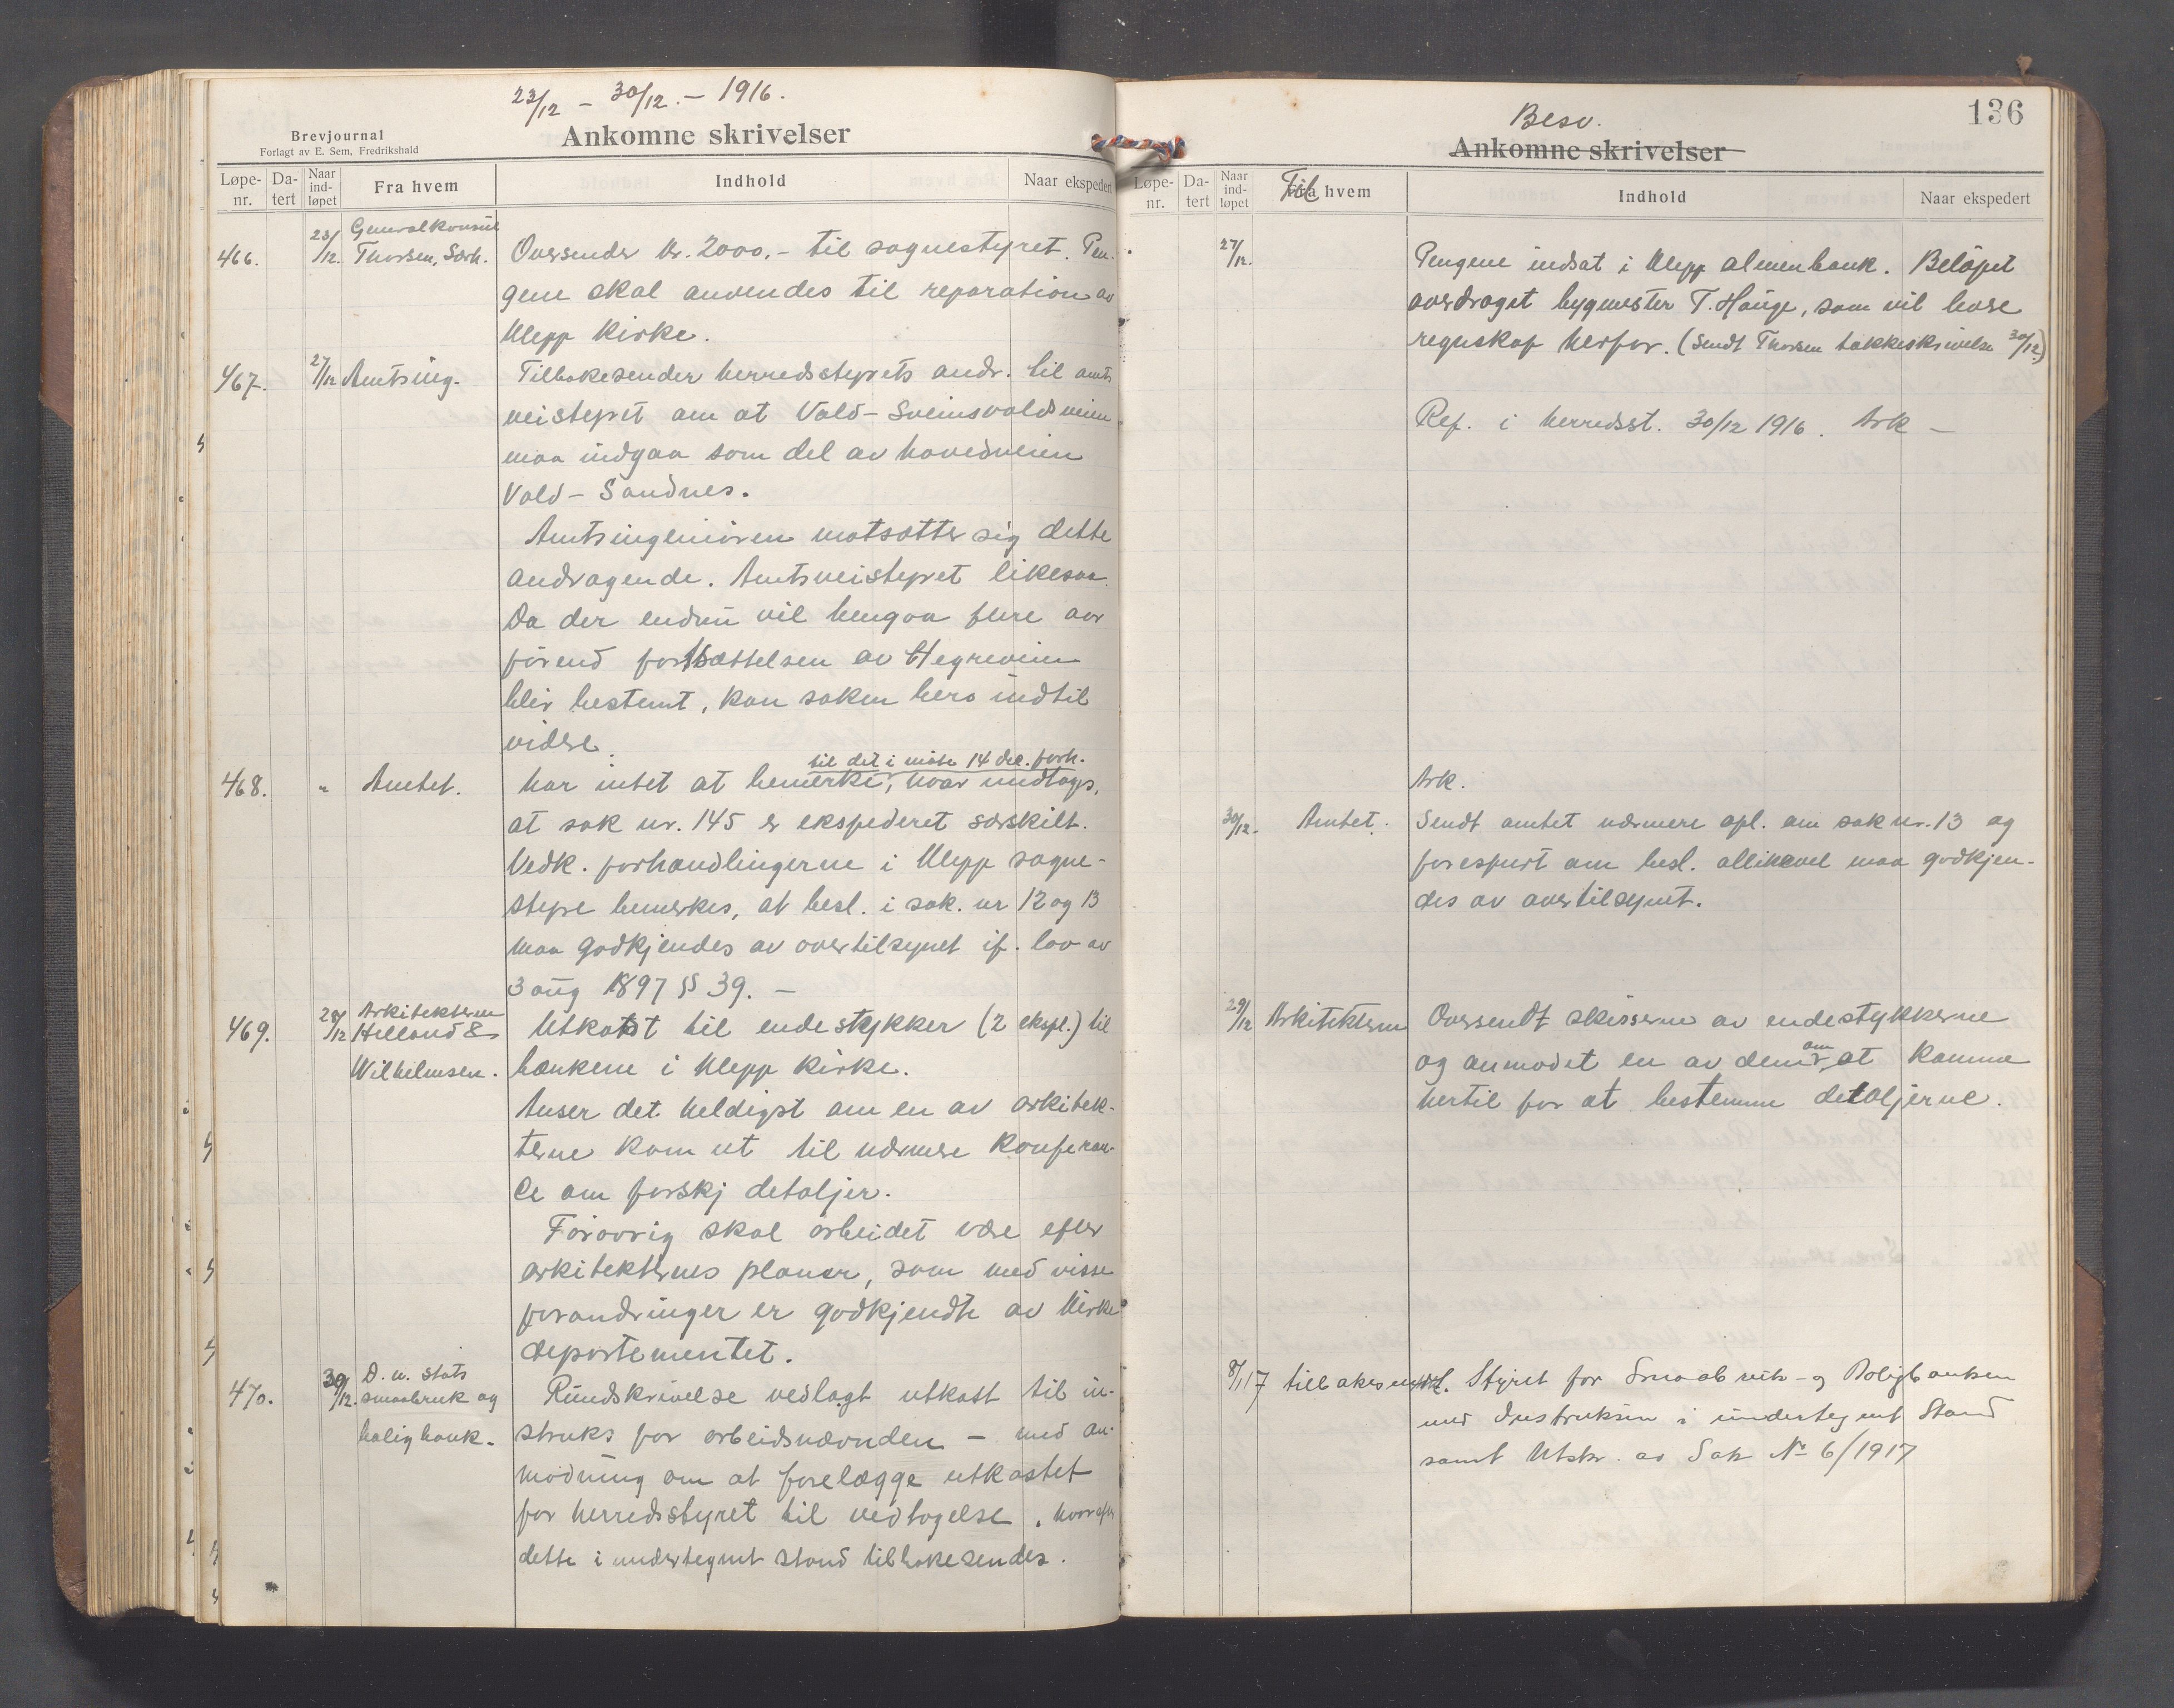 23/12 – 30/12. – 1916.
Brevjournal
Forlagt av E. Sem, Fredrikshald
Ankomne skrivelser
Løpe-nr. Da-tert Naar ind-løpet Fra hvem Indhold Naar ekspedert
466. 23/12. Generalkonsul Thorsen, Sarh. Oversender kr. 2000.– til sognestyret. Pen-
gene skal anvendes til reparation av
Klepp kirke.
467. 27/12 Amtsing. Tilbakesender herredsstyrets andr. til amts
veistyret om at Vold – Sveinsvoldsveien
maa indgaa som del av hovedveien
Vold – Sandnes.
Amtsingeniøren motsatte sig dette
andragende. Amtsveistyret likesaa.
Da der endnu vil hengaa flere aar
førend fortsættelsen av Hegreveien
blir bestemt, kan saken bero indtil
videre.
468. " Amtet. har intet at bemerke til det i møte 14 ds. forh., hvor undtages,
at sak nr. 145 er ekspederet særskilt.
Vedk. forhandlingerne i Klepp sogne-
styre bemerkes, at besl. i sak. nr 12 og 13
maa godkjendes av overtilsynet if. lov av
3 aug 1897 § 39. –
469. 28/12 Arkitekterne Helland & Wilhelmsen. Utkast til endestykker (2 ekspl.) til
bænkene i Klepp kirke.
Anser det heldigst om en av arkitek-
terne kom ut til nærmere konferan-
ce om forskj detaljer.
Forøvrig skal arbeidet være efter
arkitekternes planer, som med visse
forandringer er godkjendte av Kirke
departementet.
470. 30/12. D. n. stats smaabruk og bolig bank. Rundskrivelse vedlagt utkast til in-
struks for arbeidsnævnden – med an-
modning om at forelægge utkastet
for herredsstyret til vedtagelse, hvorefter
dette i undertegnet stand tilbakesendes.
136
Besv.
Ankomne skrivelser
Løpe-nr. Da-tert Naar ind-løpet Til hvem Indhold Naar ekspedert
27/12. Pengene indsat i Klepp almenbank. Beløpet
overdraget bygmester T. Hauge, som vil levere
regnskap herfor. (Sendt Thorsen takkeskrivelse 30/12)
Ref. i herredsst. 30/12 1916. Ark –
Ark.
30/12. Amtet. Sendt amtet nærmere opl. om sak nr. 13 og
forespurt om besl. allikevel maa godkjen-
des av overtilsynet.
29/12 Arkitekterne Oversendt skisserne av endestykkerne
og anmodet en av dem om at komme
hertil for at bestemme detaljerne.
8/1 17 tilbakesendt. Styret for Smaabruk- og Boligbanken
med Instruksen i undertegnet Stand
samt Utskr. av Sak No 6/1917